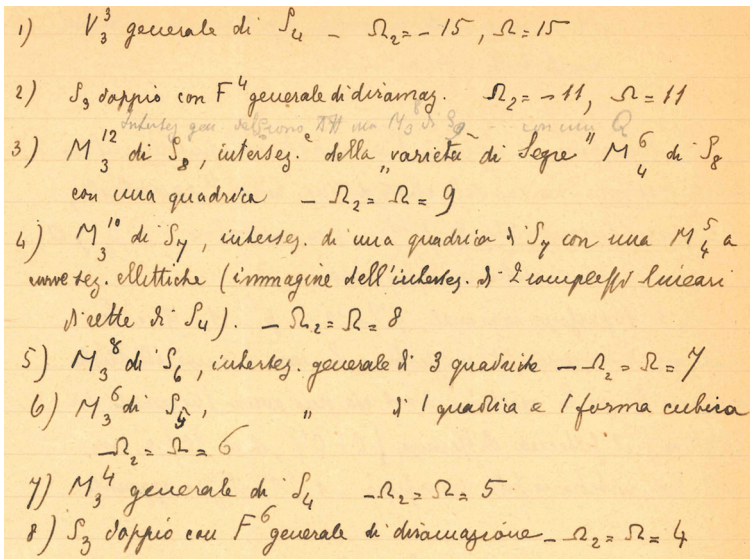 1) V₃³ generale di S₄ – Ω₂ = – 15, Ω = 15
2) S₃ doppio con F⁴ generale di diramaz. Ω₂ = – 11, Ω = 11
3) M₃¹² di S₈, intersez.ᵉ della „varietà di Segre" M₄⁶ di S₈
con una quadrica – Ω₂ = Ω = 9
4) M₃¹⁰ di S₇, intersez. di una quadrica di S₇ con una M₄⁵ a
curve sez. ellittiche (immagine dell'intersez. di 2 complessi lineari
di rette di S₄). – Ω₂ = Ω = 8
5) M₃⁸ di S₆, intersez. generale di 3 quadriche – Ω₂ = Ω = 7
6) M₃⁶ di S₅, „ di 1 quadrica e 1 forma cubica
– Ω₂ = Ω = 6
7) M₃⁴ generale di S₄ – Ω₂ = Ω = 5
8) S₃ doppio con F⁶ generale di diramazione – Ω₂ = Ω = 4